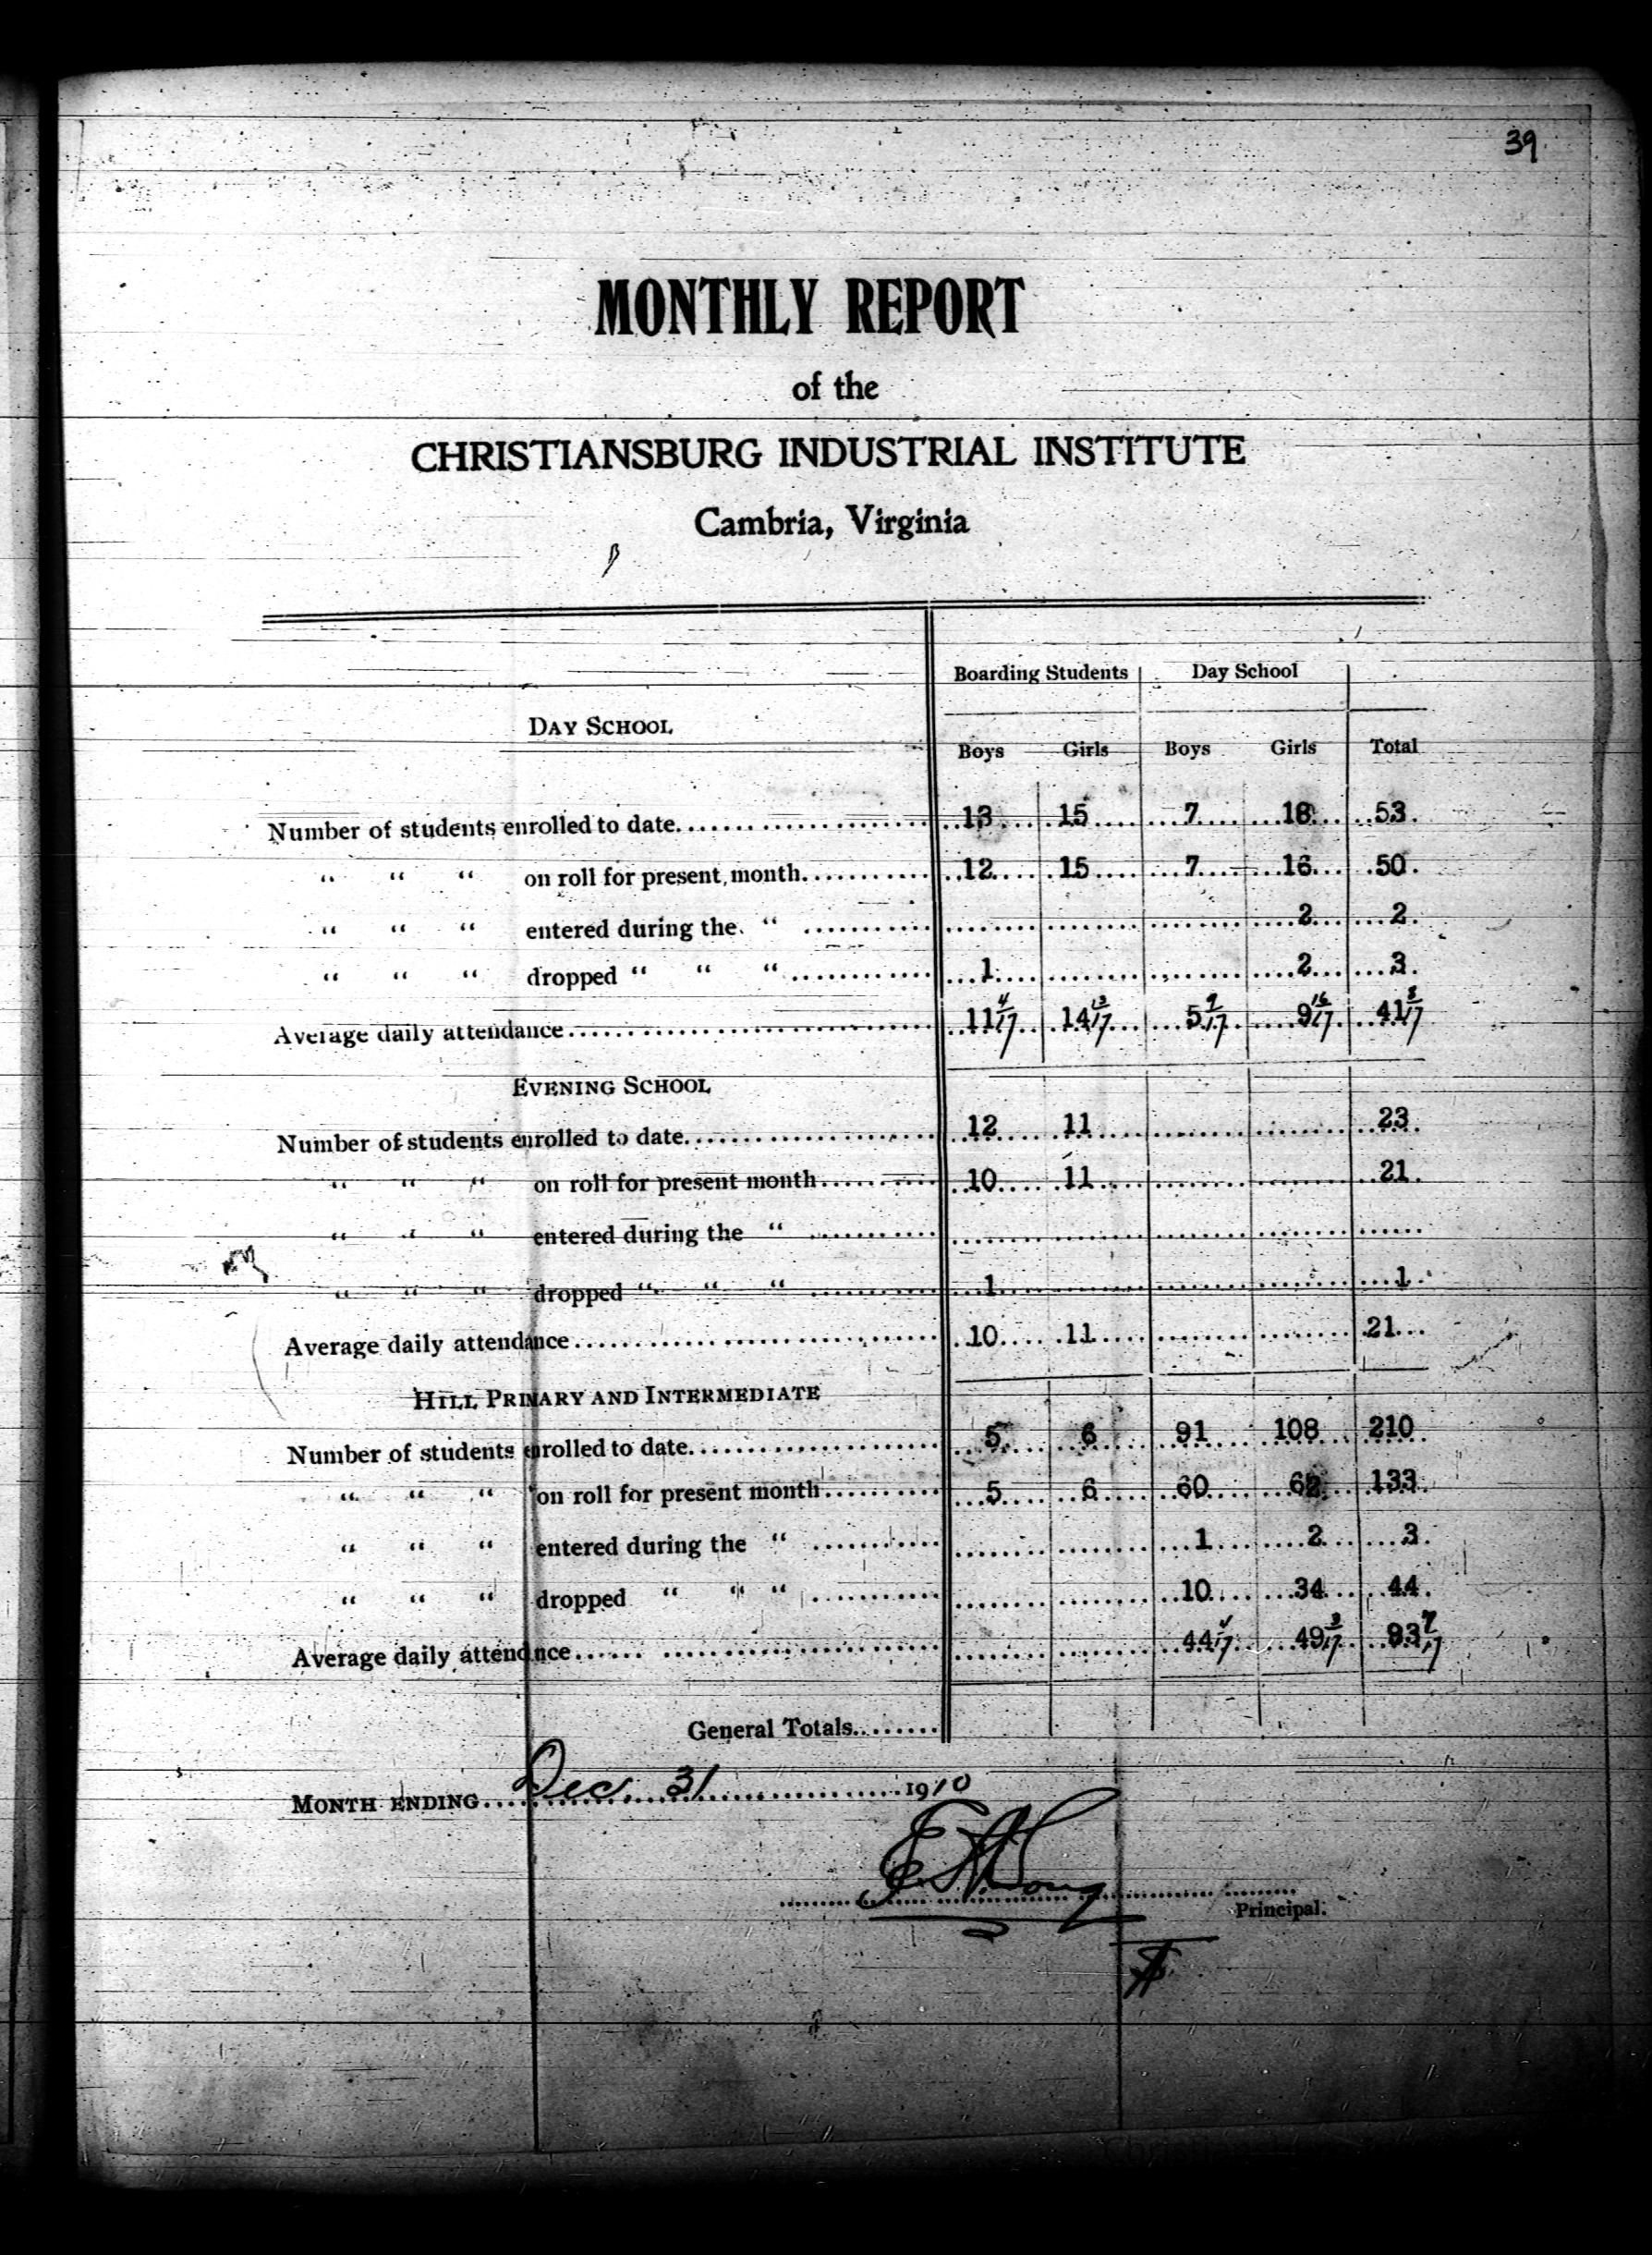 39
MONTHLY REPORT
of the
CHRISTIANSBURG INDUSTRIAL INSTITUTE
Cambria, Virginia
Boarding Students Day School
DAY SCHOOL
Boys Girls Boys Girls Total
Number of students enrolled to date 13 15 7 18 53
" " " on roll for present month 12 15 7 16 50
" " " entered during the " 2 2
" " " dropped " " " 1 2 3
Average daily attendance 11 4/17 14 13/17 5 9/17 9 16/17 41 8/17
EVENING SCHOOL
Number of students enrolled to date 12 11 23
" " " on roll for present month 10 11 21
" " " entered during the "
" " " dropped " " " 1 1
Average daily attendance 10 11 21
HILL PRIMARY AND INTERMEDIATE
Number of students enrolled to date 5 6 91 108 210
" " " on roll for present month 5 6 60 62 133
" " " entered during the " 1 2 3
" " " dropped " " " 10 34 44
Average daily attendance 44 4/17 49 3/17 93 7/17
General Totals
MONTH ENDING Dec. 31 1910
E. A. Long
Principal.